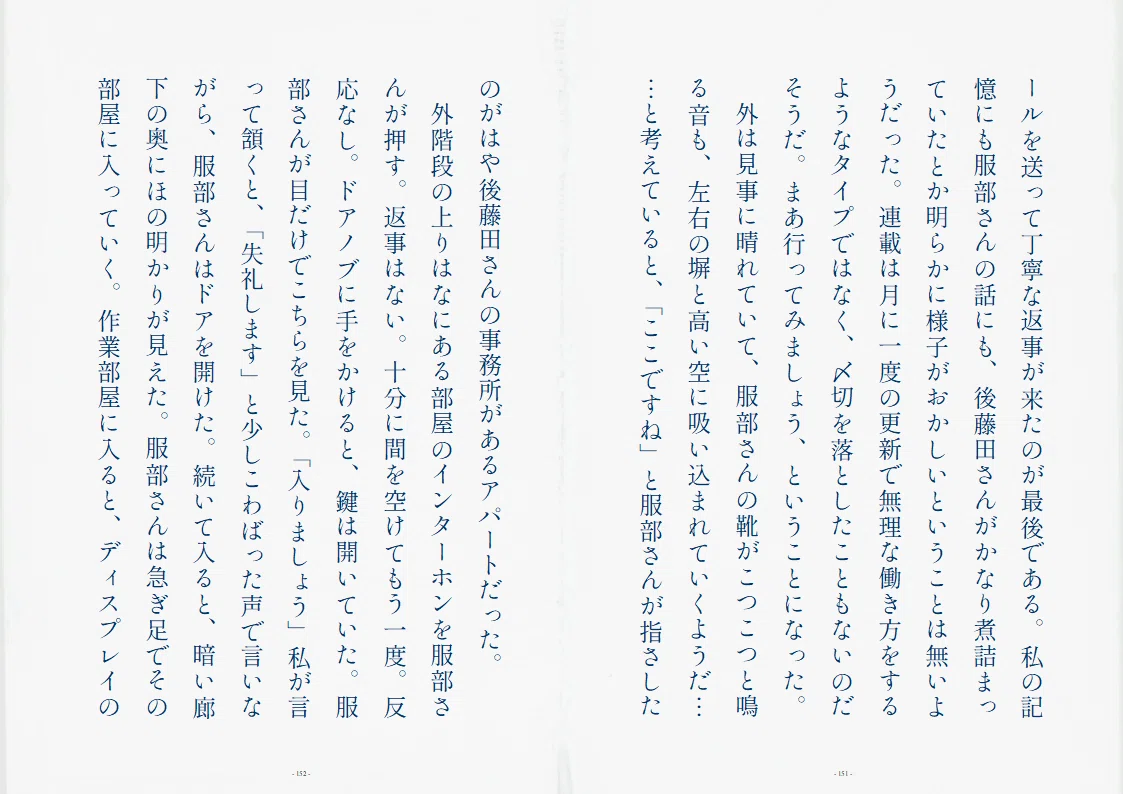 ールを送って丁寧な返事が来たのが最後である。私の記
憶にも服部さんの話にも、後藤田さんがかなり煮詰まっ
ていたとか明らかに様子がおかしいということは無いよ
うだった。連載は月に一度の更新で無理な働き方をする
ようなタイプではなく、〆切を落としたこともないのだ
そうだ。まあ行ってみましょう、ということになった。
外は見事に晴れていて、服部さんの靴がこつこつと鳴
る音も、左右の塀と高い空に吸い込まれていくようだ…
…と考えていると、「ここですね」と服部さんが指さした
- 151 -
のがはや後藤田さんの事務所があるアパートだった。
外階段の上りはなにある部屋のインターホンを服部さ
んが押す。返事はない。十分に間を空けてもう一度。反
応なし。ドアノブに手をかけると、鍵は開いていた。服
部さんが目だけでこちらを見た。「入りましょう」私が言
って頷くと、「失礼します」と少しこわばった声で言いな
がら、服部さんはドアを開けた。続いて入ると、暗い廊
下の奥にほの明かりが見えた。服部さんは急ぎ足でその
部屋に入っていく。作業部屋に入ると、ディスプレイの
- 152 -